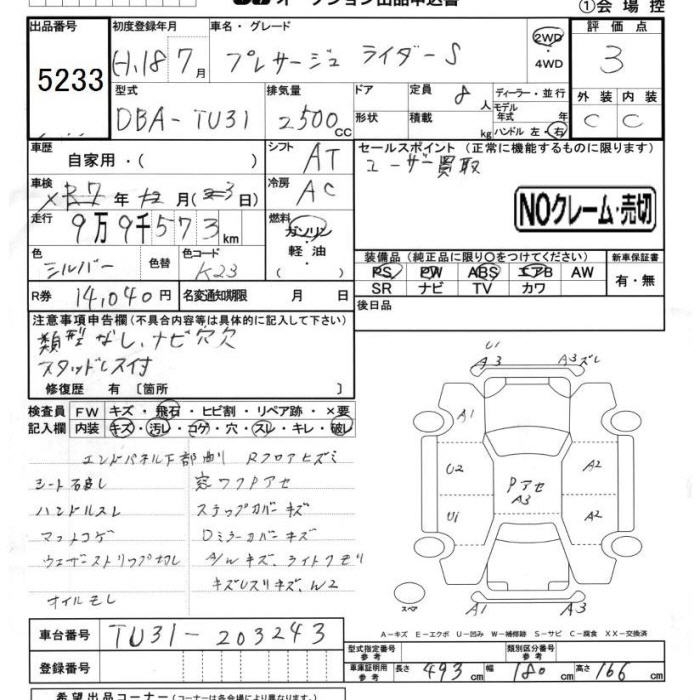 オークション出品申込書
①会場控
出品番号 5233
初度登録年月 H.18 7月
車名・グレード プレサージュ ライダーS
2WD・4WD
評価点 3
型式 DBA-TU31
排気量 2500cc
ドア 形状
定員 8人
積載 kg
ディーラー・並行
モデル年式 年
ハンドル 左・右
外装 C 内装 C
車歴 自家用・( )
シフト AT
セールスポイント (正常に機能するものに限ります)
ユーザー買取
車検
冷房 AC
NOクレーム・売切
走行 9万9千573km
燃料 ガソリン・軽油
色 シルバー 色替 色コード K23
装備品 (純正品に限り○をつけてください)
新車保証書
PS PW ABS エアB AW
SR ナビ TV カワ
有・無
R券 14,040円
名変通知期限 月 日
後日品
注意事項申告欄(不具合内容等は具体的に記入して下さい)
類型なし、ナビ穴欠
スタッドレス付
修復歴 有 〔箇所 〕
検査員記入欄
FW キズ・飛石・ヒビ割・リペア跡・×要
内装 キズ・汚レ・コゲ・穴・スレ・キレ・破レ
エンドパネル下部曲り Rフロアヒズミ
窓ワクPアセ
ハンドルスレ ステップカバーキズ
マットコゲ Dミラーカバーキズ
ウェザーストリップ切レ A/Wキズ、ライトクモリ
オイルモレ
U1 A3 A3ズレ
A1
U2 A2
PアセA3
U1 A2
スペア A1 A3
A-キズ E-エクボ U-凹み W-補修跡 S-サビ C-腐食 XX-交換済
車台番号 TU31-203243
型式指定番号 参考 類別区分番号 参考
登録番号
車庫証明用参考 長さ 493cm 幅 180cm 高さ 166cm
希望出品コーナー(コーナーは各会場により異なります。)